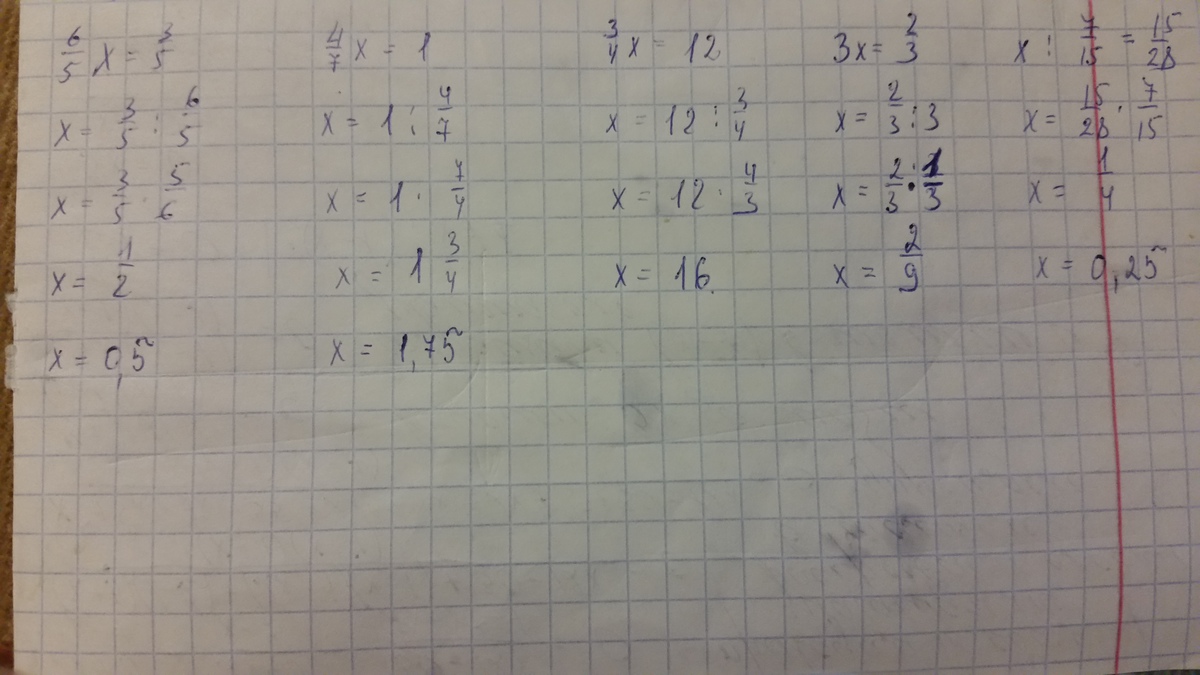 6/5 x = 3/5
x = 3/5 : 6/5
x = 3/5 · 5/6
x = 1/2
x = 0,5
4/7 x = 1
x = 1 : 4/7
x = 1 · 7/4
x = 1 3/4
x = 1,75
3/4 x = 12
x = 12 : 3/4
x = 12 · 4/3
x = 16
3x = 2/3
x = 2/3 : 3
x = 2/3 · 1/3
x = 2/9
x : 7/15 = 15/28
x = 15/28 · 7/15
x = 1/4
x = 0,25